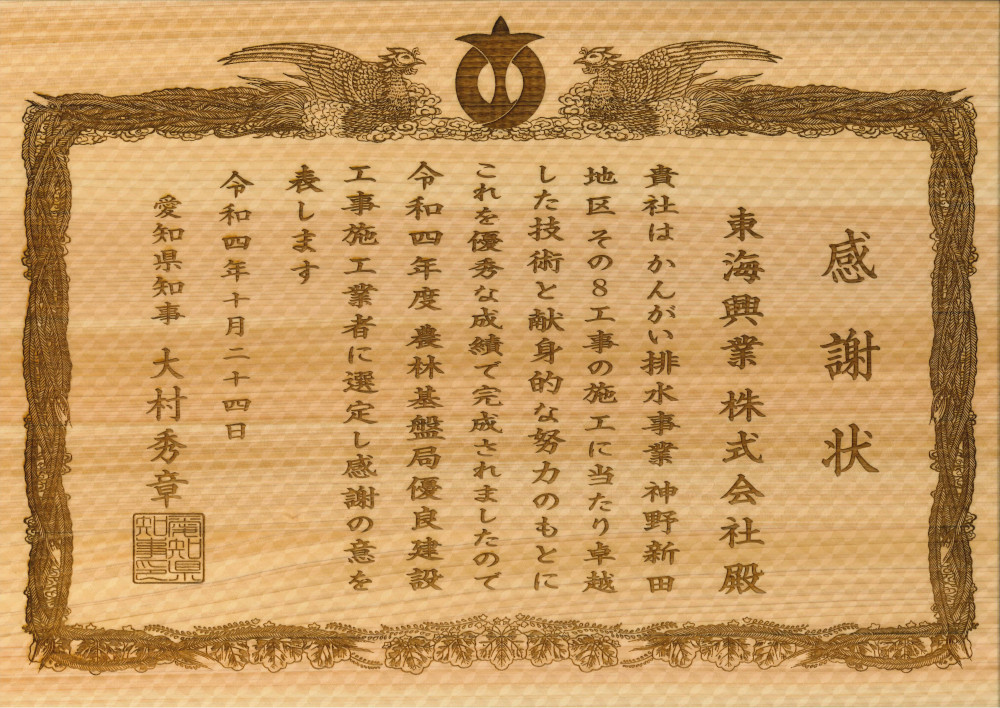 感謝状
東海興業 株式会社殿
貴社はかんがい排水事業 神野新田
地区 その8工事の施工に当たり卓越
した技術と献身的な努力のもとに
これを優秀な成績で完成されましたので
令和四年度 農林基盤局優良建設
工事施工業者に選定し感謝の意を
表します
令和四年十月二十四日
愛知県知事 大村秀章
愛知県
知事之印